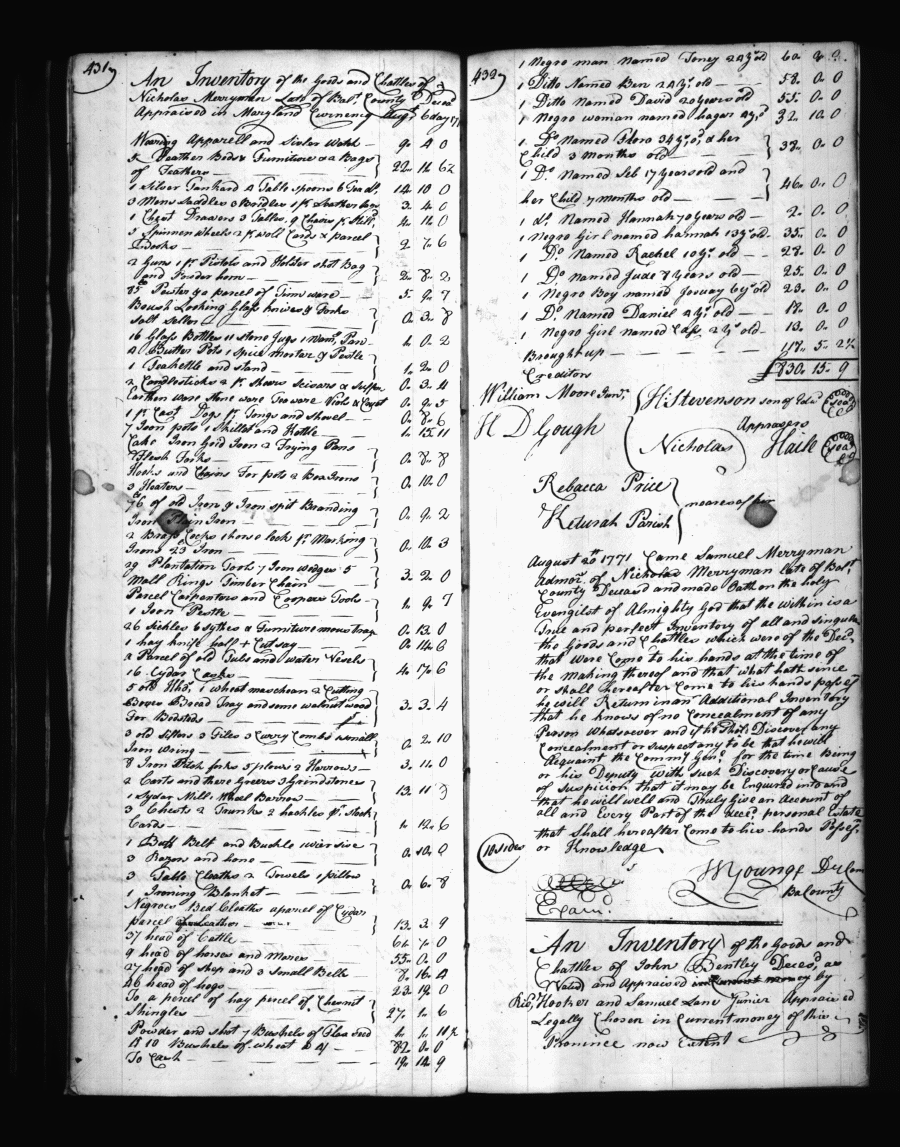 431
An Inventory of the Goods and Chattles of
Nicholas Merryman Late of Balt. County Decd
Appraised in Maryland Currency 6 day
Wearing Apparell and Silver Watch — 9. 4. 0
5 Feather Beds & Furniture & a Bags
of Feathers — 22. 11. 6½
1 Silver Tankard 4 Table spoons 6 Tea do. 14. 10. 0
3 Mens Saddles 3 Bridles 1 pr. Leather bags 3. 4. 0
1 Chest Drawers 3 Tables, 9 Chairs pr. Still. 4. 11. 0
3 Spinnen Wheels 2 pr. Woll Cards & parcel
Books — 2. 7. 6
2 Guns 1 pr. Pistols and Holster shot Bag
and Powder horn — 2. 8. 2
85 Pewter & a parcel of Tinn ware — 5. 9. 7
Brush Looking Glass knives & Forks
Salt Seller — 0. 3. 8
16 Glass Bottles 11 stone Jugs 1 Warmg. Pan — 1. 0. 2
4 Butter Pots 1 spice mortar & Pestle
1 Teakettle and stand — 1. 2. 0
2 Candlesticks 2 pr. Shears Scisars & — 0. 3. 4
Earthen ware Stone ware Tea ware & — 0. 9. 5
1 pr. Cast Dogs pr. Tongs and shovel — 0. 8. 6
7 Iron pots 1 Skillet and Kettle — 1. 15. 11
Cake Iron Grid Iron 2 Frying Pans
2 Flesh Forks — 0. 8. 8
Hooks and Chains For pots 2 Box Irons
3 Heaters — 0. 10. 0
76 of old Iron & Iron spit Branding
Iron Plain Iron — 0. 9. 2
2 Brass Cocks 1 horse lock pr. Marking
Irons 23 Iron — 0. 10. 3
29 Plantation Tools 7 Iron wedges 5
Mall Rings Timber Chain — 3. 2. 0
Parcel Carpenters and Coopers Tools
1 Iron Pestle — 1. 9. 7
26 Sickles 6 sythes & Furniture mous trap 0. 13. 0
1 hay knife — 0. 14. 6
a Parcel of old Tubs and water Vesels
16 Cydar Casks — 4. 17. 6
5 old Hhds. 1 wheat maschean 2 Cutting
Boxes Bread Tray and some walnut wood
For Bedsteds — 3. 3. 4
3 old sifters 3 Files 3 Curry Combs a small
Iron Wring — 0. 2. 10
8 Iron Pitch forks 5 plows 2 Harrows — 3. 11. 0
2 Carts and there Geers 3 Grindstones
1 Syder Mill Wheel Barrow — 13. 11. 3
3 Chests 2 Trunks 2 hackles pr. Stock
Cards — 1. 12. 6
1 Buff Belt and Buckle
3 Razors and hone — 0. 10. 0
3 Table Cloaths 2 Towels 1 pillow
1 Ironing Blanket — 0. 6. 8
Negroes Bed Cloaths a parcel of Cydar
parcel Leather — 13. 3. 9
37 head of Cattle — 61. 7. 0
9 head of horses and Mares — 55. 0. 0
27 head of Shep and 3 Small Bells — 8. 16. 4
46 head of hogs — 23. 12. 0
To a percel of hay percel of Chesnut
Shingles — 27. 1. 6
Powder and shot 7 Bushels of Flax seed 1. 1. 11½
Bushels of wheat a 4/ — 82. 0. 0
To Cash — 19. 14. 9
432
1 Negro man Named Toney 22 yrs. old 60. 2. 3.
1 Ditto Named Ben 24 yrs. old — 58. 0. 0
1 Ditto named David 20 years old — 55. 0. 0
1 Negro woman named hagar yr. o 32. 10. 0
1 Do. Named Flora 34 yrs. o, & her
Child 3 Months old — 38. 0. 0
1 Do. Named Seb 17 years old and
her Child 7 months old — 46. 0. 0
1 do. Named Hannah 70 years old — 2. 0. 0
1 Negro Girl named hannah 13 yr. old — 35. 0. 0
1 Do. Named Rachel 10 yr. old — 28. 0. 0
1 Do. named Jude 8 years old — 25. 0. 0
1 Negro Boy named Josuay 6 yr. old 23. 0. 0
1 Do. Named Daniel 4 yr. old — 18. 0. 0
1 Negro Girl named Cass. 2 yr. old — 13. 0. 0
Brought up — 117. 5. 2½
Creditors £830. 15. 9
William Moore Junr.
H D Gough
H. Stevenson son of Edwd Seal
Apprasers
Nicholas Haile Seal
Rebacca Price
Keturah Parish
neares of kin
August 20th 1771 Came Samuel Merryman
Admor. of Nicholas Merryman late of Balt.
County Deceasd and made Oath on the holy
Evengilest of Almighty God that the within is a
True and perfect Inventory of all and singular
the Goods and Chattles which were of the Decd,
that Were Come to his hands at the time of
the Making thereof and that what hath since
or shall hereafter Come to his hands posses
he will Return in an Additional Inventory
that he knows of no Concealment of any
Person Whatsoever and if he Shall Discover any
Concealment or Suspect any to be that he will
Acquaint the Commy. Genl. for the time Being
or his Deputy with such Discovery or Cause
of Suspicion that it may be Enquired into and
that he will well and Truly Give an Account of
all and Every Part of the decd. personal Estate
that Shall hereafter Come to his hands Posses.
or Knowledge
10 sides
Exam.
W Young Dy Com
Ba County
An Inventory of the Goods and
Chattles of John Bentley Decesd, as
Vallued and Appraised by
Hooker and Samuel Lane Junier Appraised
Legally Chosen in Current money of this
Province now Extent